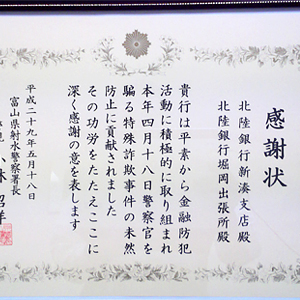 感謝状
北陸銀行新湊支店殿
北陸銀行堀岡出張所殿
貴行は平素から金融防犯
活動に積極的に取り組まれ
本年四月十八日警察官を
騙る特殊詐欺事件の未然
防止に貢献されました
その功労をたたえここに
深く感謝の意を表します
平成二十九年五月十八日
富山県射水警察署長
小林